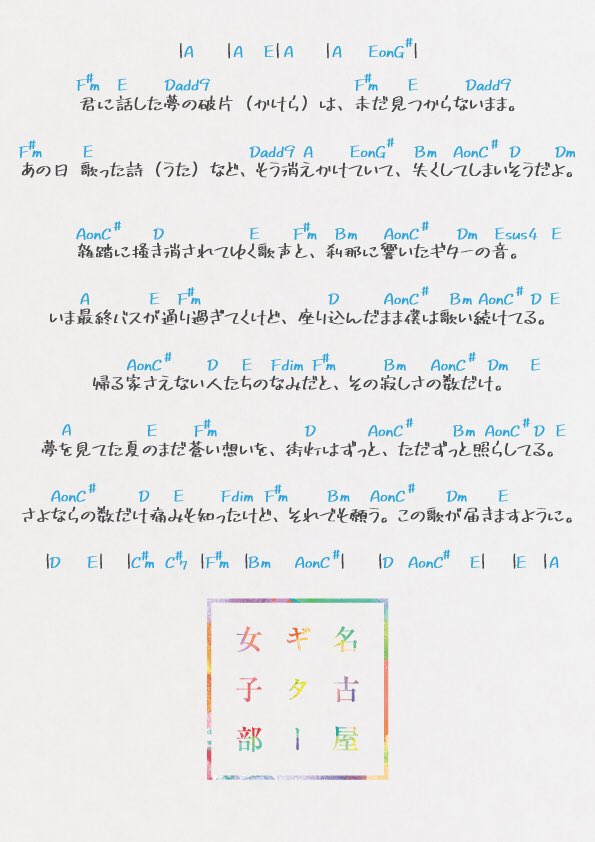 |A |A E|A |A EonG#|
F#m E Dadd9 F#m E Dadd9
君に話した夢の破片（かけら）は、まだ見つからないまま。
F#m E Dadd9 A EonG# Bm AonC# D Dm
あの日 歌った詩（うた）など、そう消えかけていて、失くしてしまいそうだよ。
AonC# D E F#m Bm AonC# Dm Esus4 E
雑踏に掻き消されてゆく歌声と、刹那に響いたギターの音。
A E F#m D AonC# Bm AonC# D E
いま最終バスが通り過ぎてくけど、座り込んだまま僕は歌い続けてる。
AonC# D E Fdim F#m Bm AonC# Dm E
帰る家さえない人たちのなみだと、その寂しさの数だけ。
A E F#m D AonC# Bm AonC# D E
夢を見てた夏のまだ蒼い想いを、街灯はずっと、ただずっと照らしてる。
AonC# D E Fdim F#m Bm AonC# Dm E
さよならの数だけ痛みも知ったけど、それでも願う。この歌が届きますように。
|D E| |C#m C#7 |F#m |Bm AonC#| |D AonC# E| |E |A
名古屋
ギター
女子部